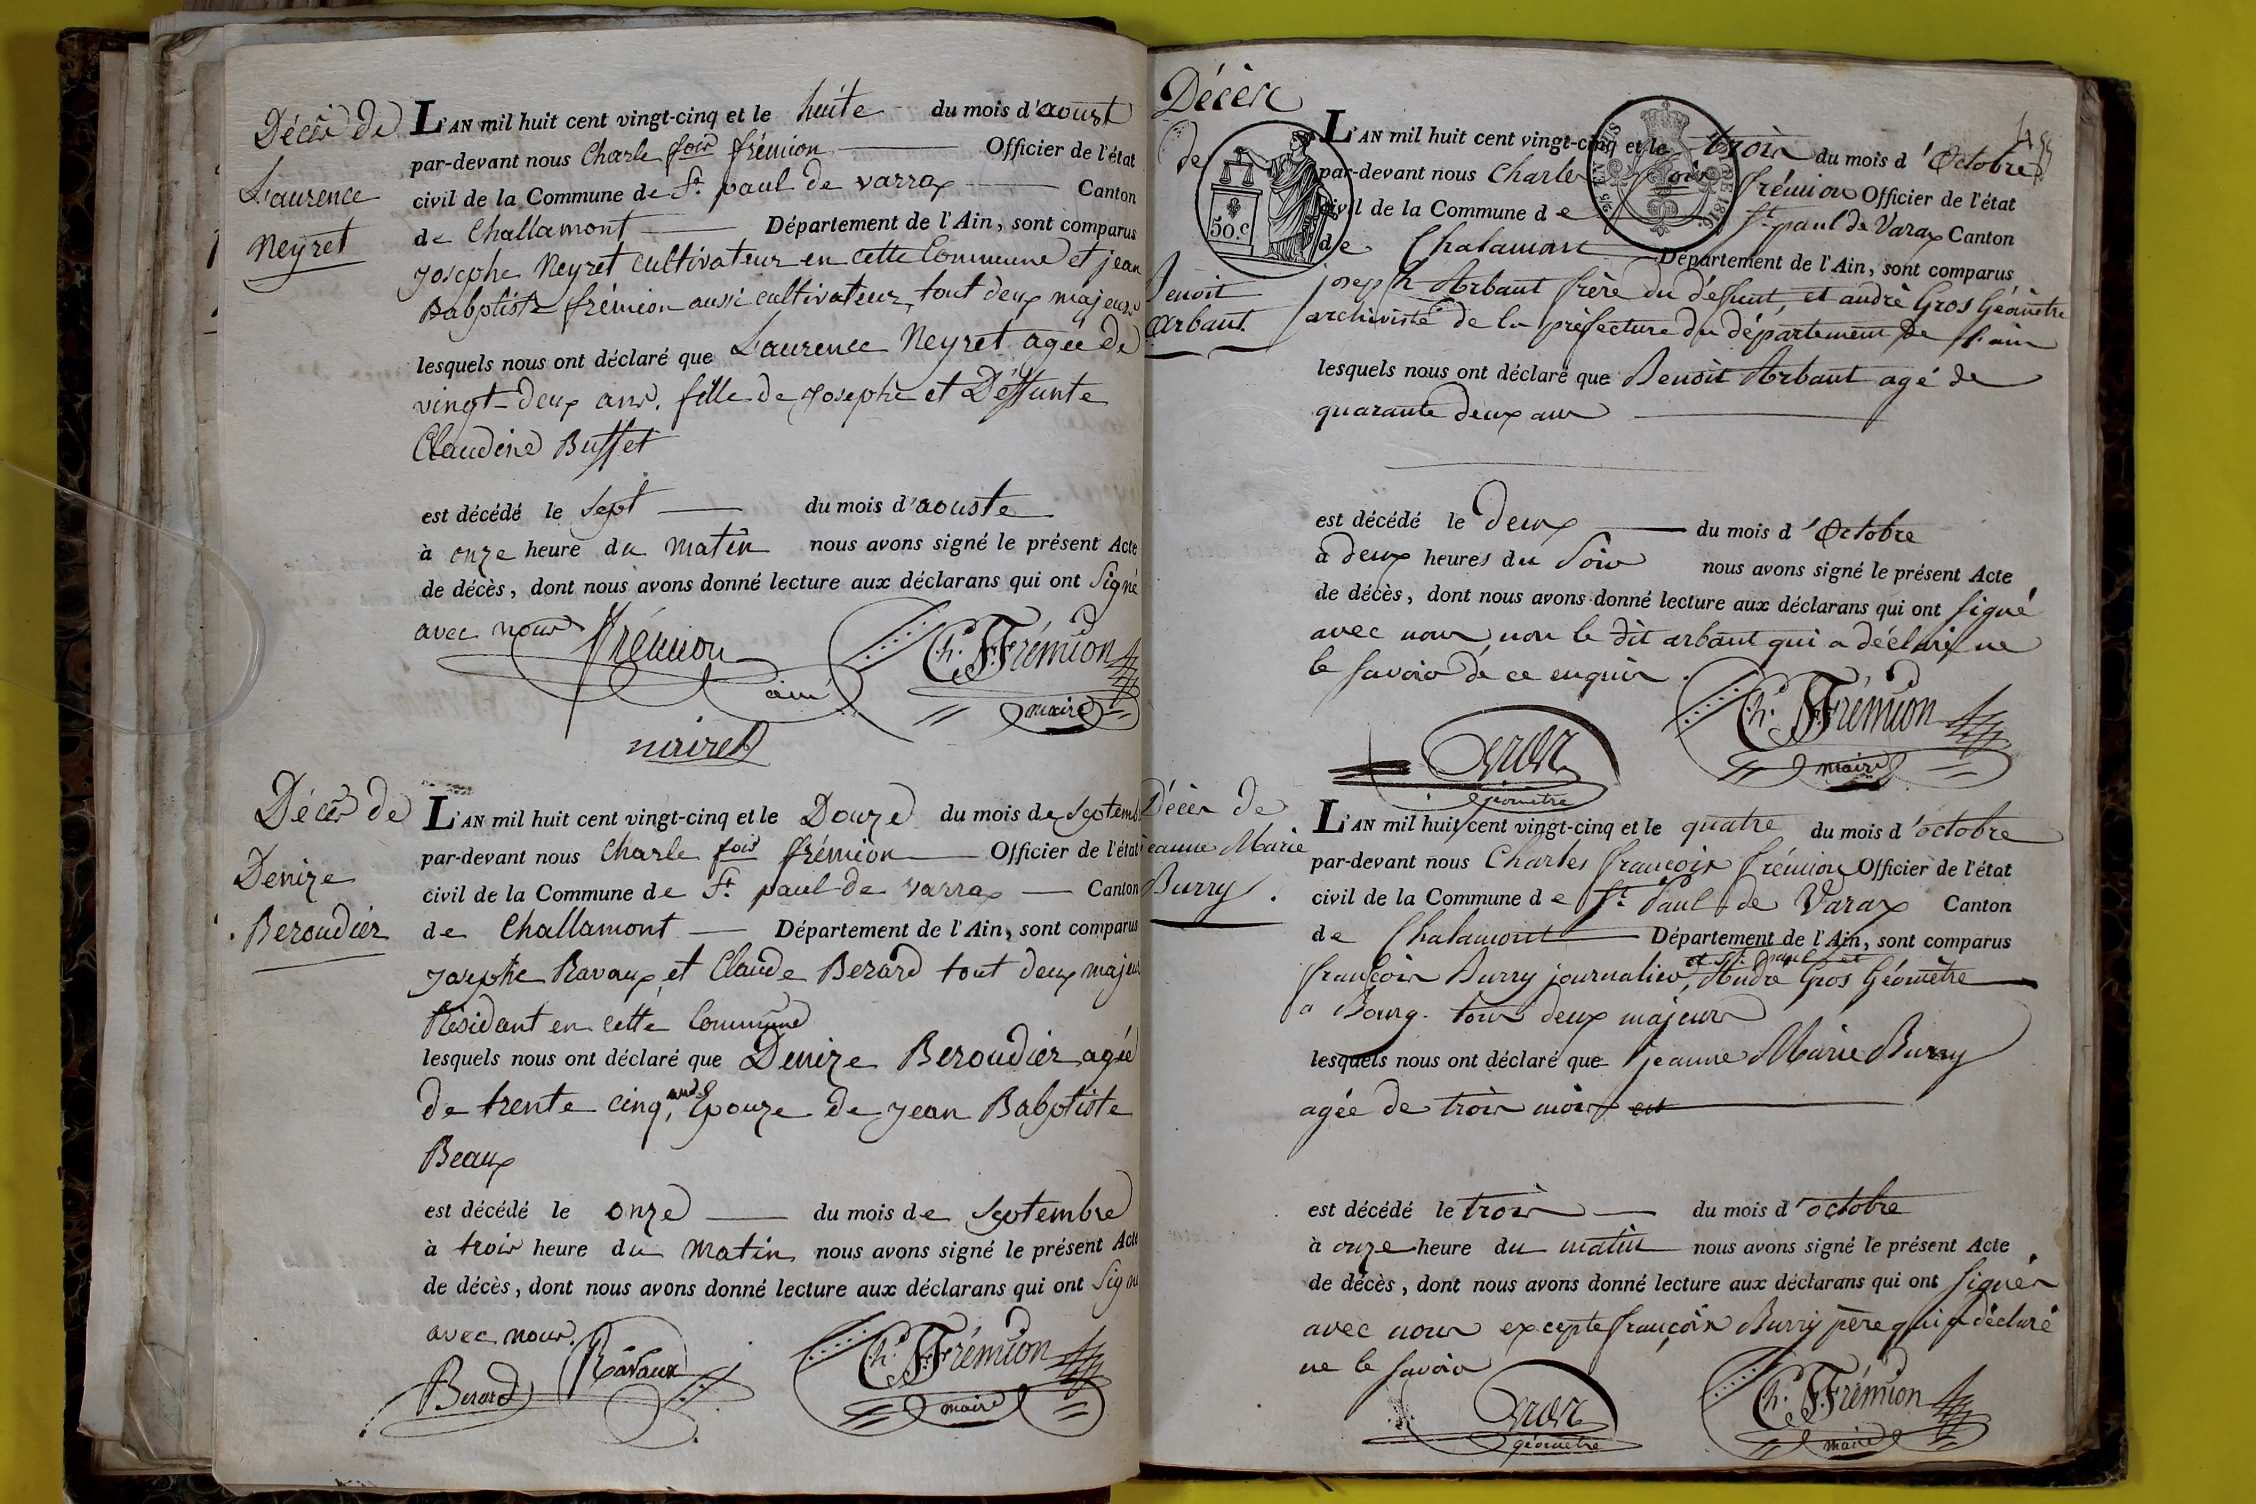 Décès de
Laurence
Neyret
L'AN mil huit cent vingt-cinq et le huite du mois d'aoust
par-devant nous Charle fois frémion Officier de l'état
civil de la Commune de St paul de varrax Canton
de Challamont Département de l'Ain, sont comparus
Josephe Neyret cultivateur en cette Commune et jean
Babptiste frémion aussi cultivateur, tout deux majeurs
lesquels nous ont déclaré que Laurence Neyret agée de
vingt-deux ans. fille de Josephe et Déffunte
Claudine Buffet
est décédé le sept du mois d'aouste
à onze heure du matin nous avons signé le présent Acte
de décès, dont nous avons donné lecture aux déclarans qui ont signé
avec nous
frémion
Ch. F. Frémion
maire
Décès de
Denize
Beroudier
L'AN mil huit cent vingt-cinq et le Douze du mois de Septemb
par-devant nous Charle fois frémion Officier de l'état
civil de la Commune de St paul de varrax Canton
de Challamont Département de l'Ain, sont comparus
Josephe Ravaux et Claude Berard tout deux majeu
Résidant en cette Commune
lesquels nous ont déclaré que Denize Beroudier agée
de trente cinq ans, Epouze de Jean Babptiste
Beaux
est décédé le onze du mois de Septembre
à trois heure du matin nous avons signé le présent Acte
de décès, dont nous avons donné lecture aux déclarans qui ont Signé
avec nous.
Berard Ravaux
Ch. F. Frémion
maire
Décès
de
Benoit
Arbant
50.c
L'AN mil huit cent vingt-cinq et le trois du mois d'Octobre
par-devant nous Charles fois frémion Officier de l'état
civil de la Commune de St paul de Varax Canton
de Chalamont Département de l'Ain, sont comparus
joseph Arbant frère du défunt, et andré Gros Géomètre
archiviste de la préfecture du département de l'ain
lesquels nous ont déclaré que Benoit Arbant agé de
quarante deux ans
est décédé le deux du mois d'Octobre
à deux heures du Soir nous avons signé le présent Acte
de décès, dont nous avons donné lecture aux déclarans qui ont signé
avec nous, non le dit arbant qui a déclaré ne
le savoir de ce enquis.
Gros
géomètre
Ch. F. Frémion
maire
Décès de
jeanne Marie
Burry.
L'AN mil huit cent vingt-cinq et le quatre du mois d'octobre
par-devant nous Charles françois frémion Officier de l'état
civil de la Commune de St Paul de Varax Canton
de Chalamont Département de l'Ain, sont comparus
françois Burry journalier, à St. paul et André Gros Géomètre
a Bourg. tous deux majeurs
lesquels nous ont déclaré que jeanne Marie Burry
agée de trois mois est
est décédé le trois du mois d'octobre
à onze heure du matin nous avons signé le présent Acte
de décès, dont nous avons donné lecture aux déclarans qui ont signés
avec nous excepté françois Burry père qui a déclaré
ne le savoir
Gros
géomètre
Ch. F. Frémion
maire